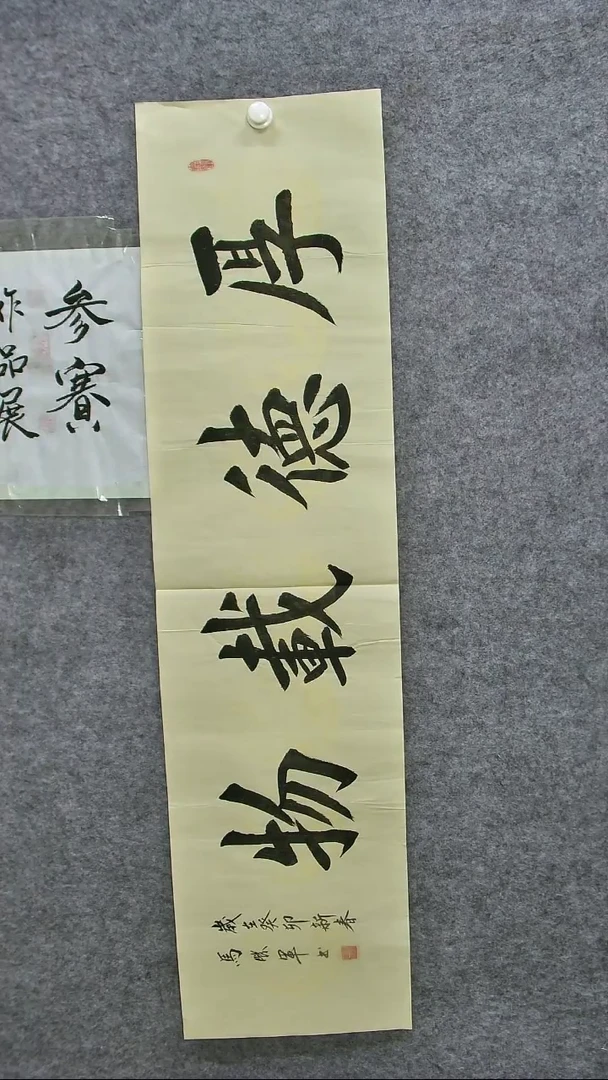 厚德載物
歲在癸卯新春
馬胜軍书
参賽
作品展